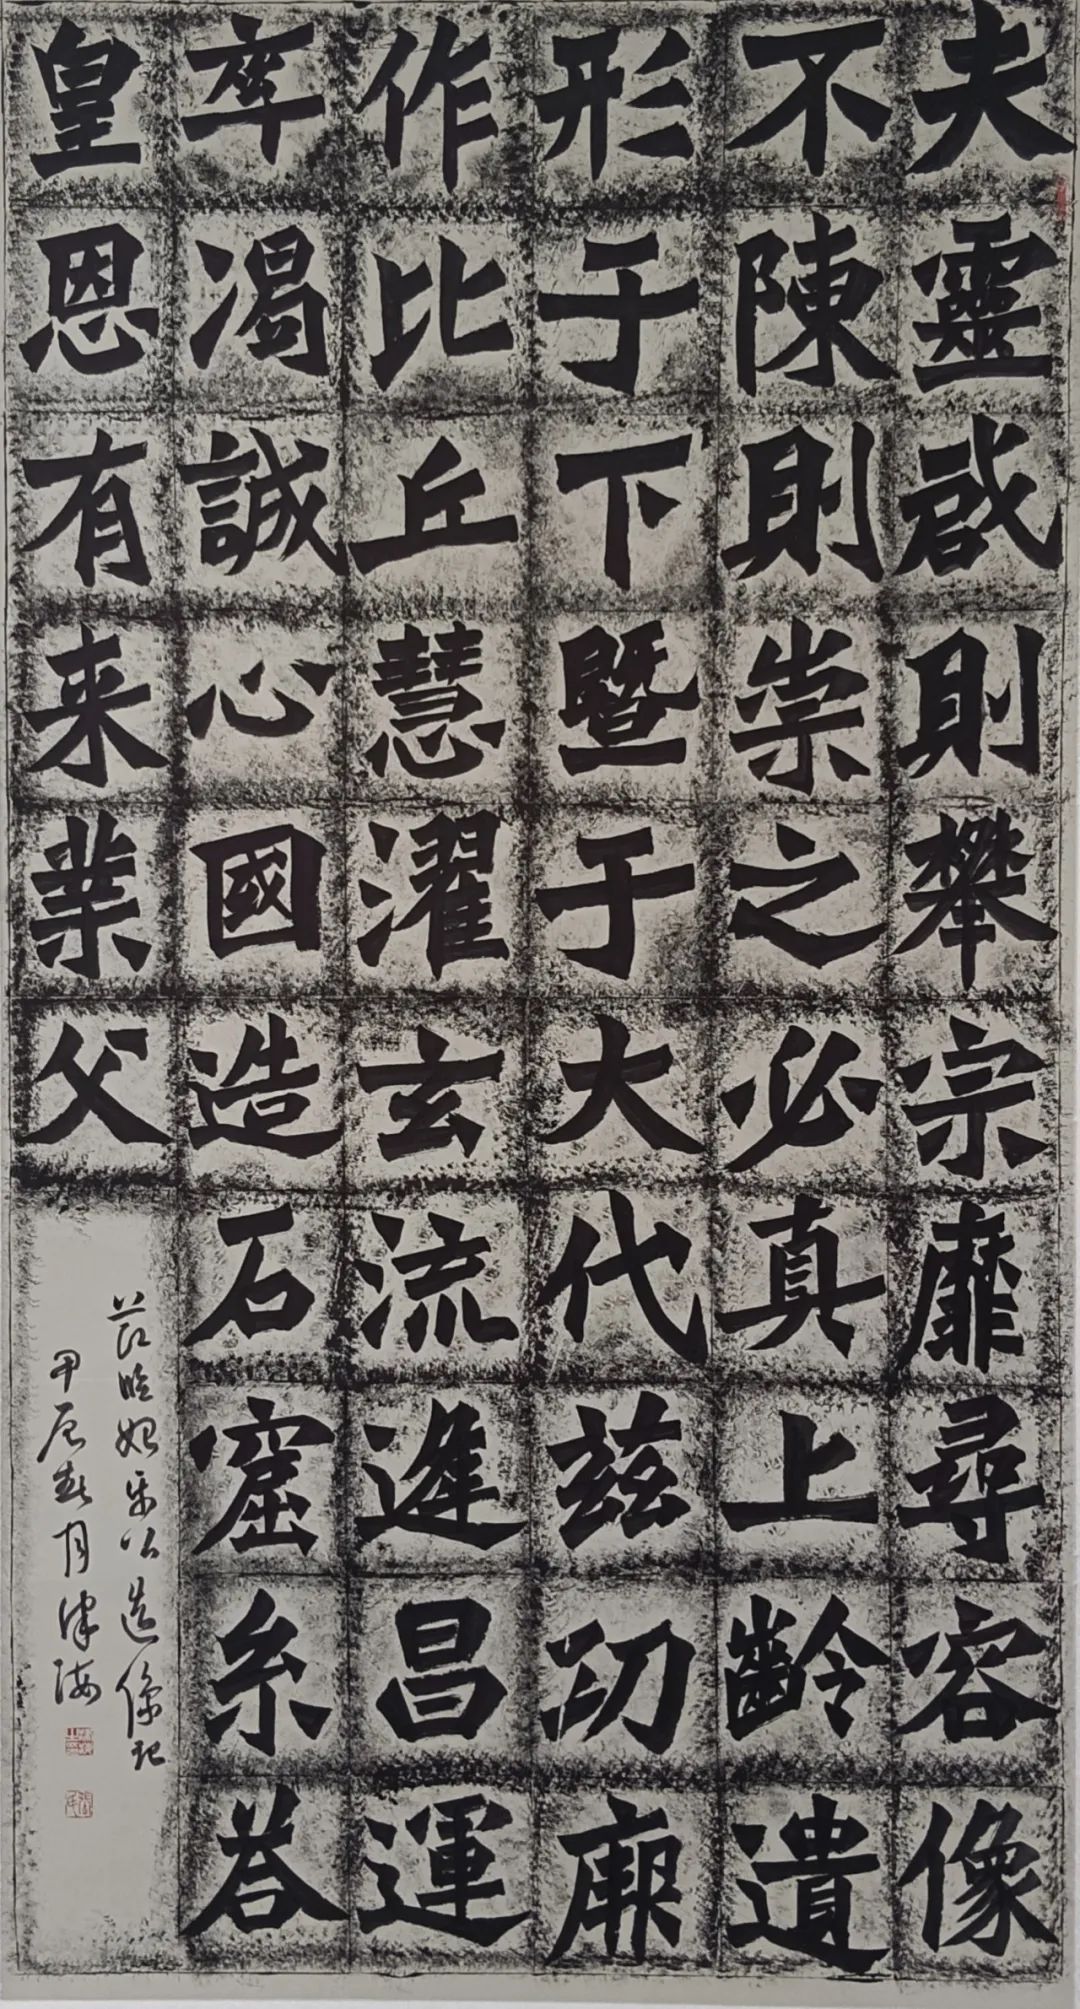 夫靈啟則攀宗靡尋容像
不陳則崇之必真上齡遺
形于下暨于大代茲㓛厥
作比丘慧濯玄流遅昌運
率渴誠心國造石窟糸荅
皇恩有来業父
節臨始平公造像記
甲辰春月津海